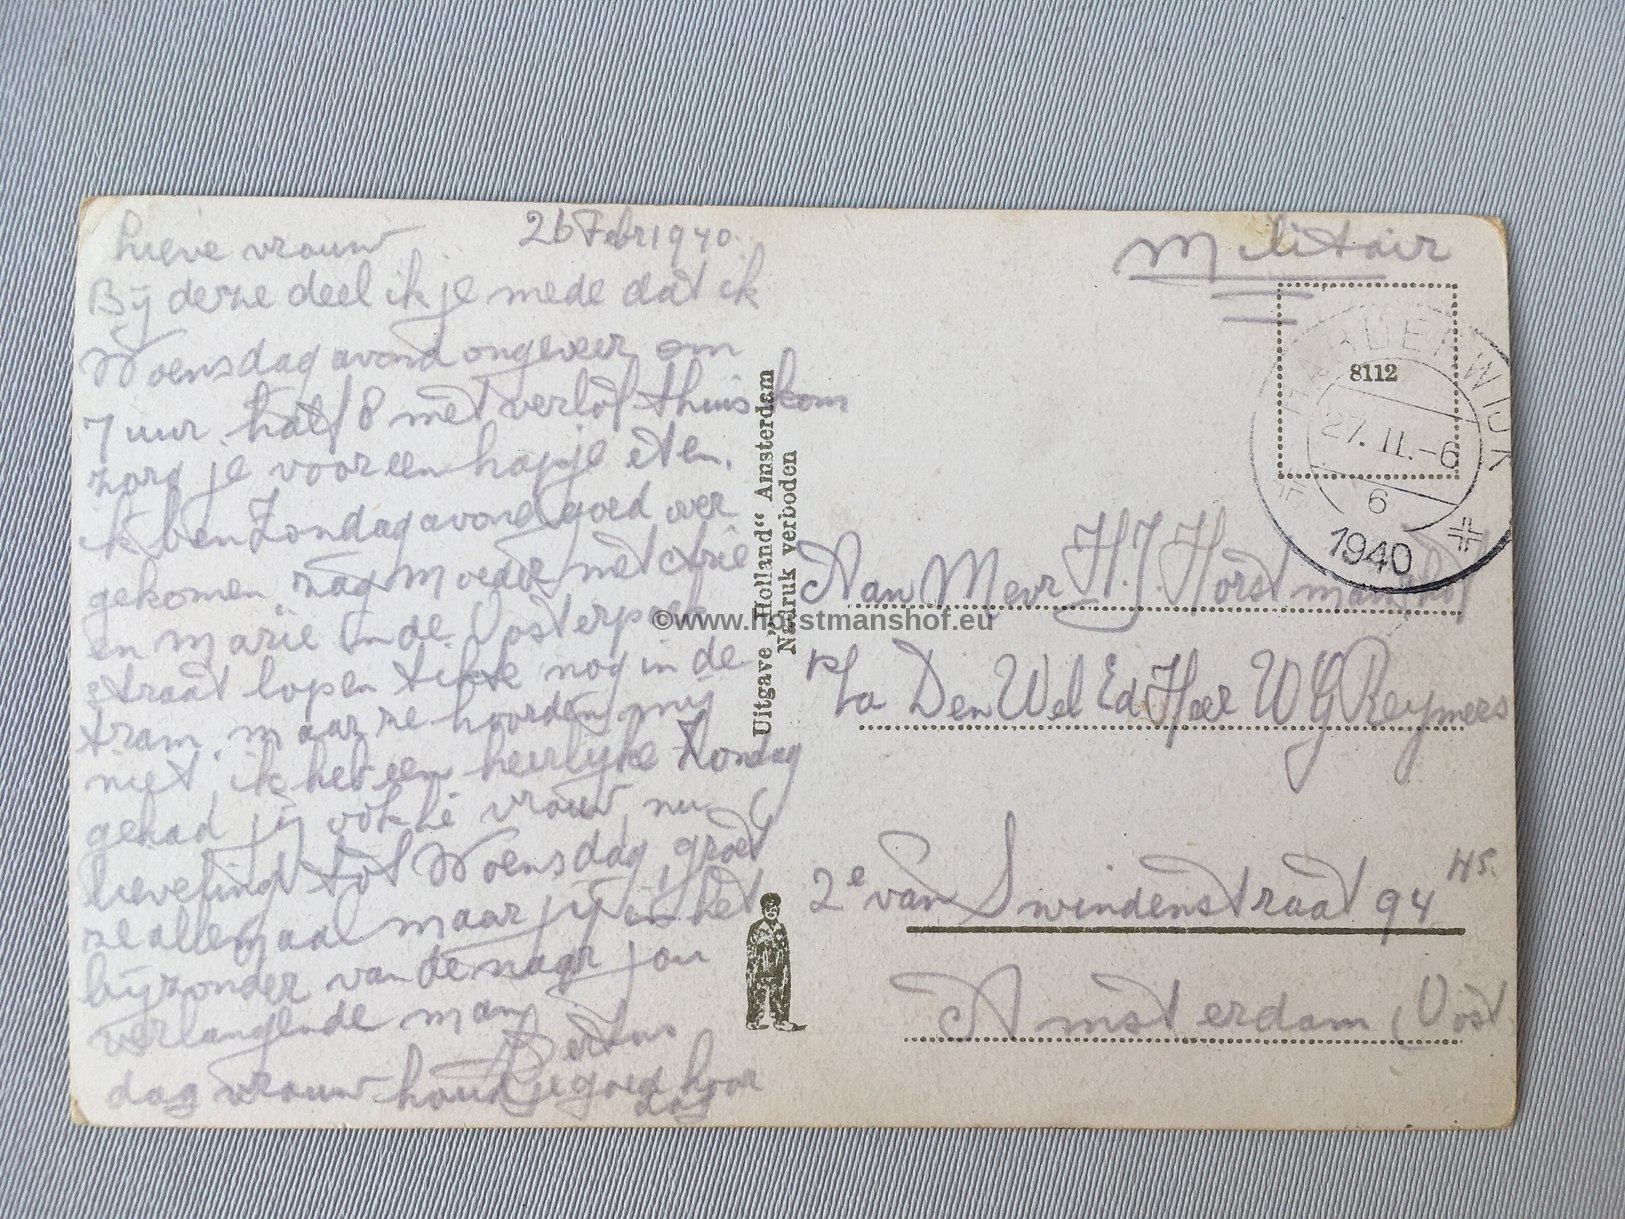 Lieve vrouw 26 Febr 1940.
Bij derze deel ik je mede dat ik
Woensdag avond ongeveer om
7 uur half 8 met verlof thuis kom
zorg je voor een hapje eten.
ik ben Zondag avond goed over
gekomen zag moeder met
en Marie in de Oosterpark
straat lopen nog in de
tram, maar ze hoorden mij
niet, ik heb een heerlijke Zondag
gehad jij ook hé vrouw, nu
lieveling tot Woensdag groet
ze allemaal maar jij in het
bijzonder van de naar jou
verlangende man
Bertus
dag vrouw houd je goed hoor
dag
Militair
8112
HARDERWIJK
27.II.-6
6
1940
Aan Mevr H.J. Horstmanshof
p/a Den Wel Ed Heer W G Reymers
2e van Swindenstraat 94 HS.
Amsterdam (Oost
Uitgave „Holland“ Amsterdam
Nadruk verboden
©www.horstmanshof.eu